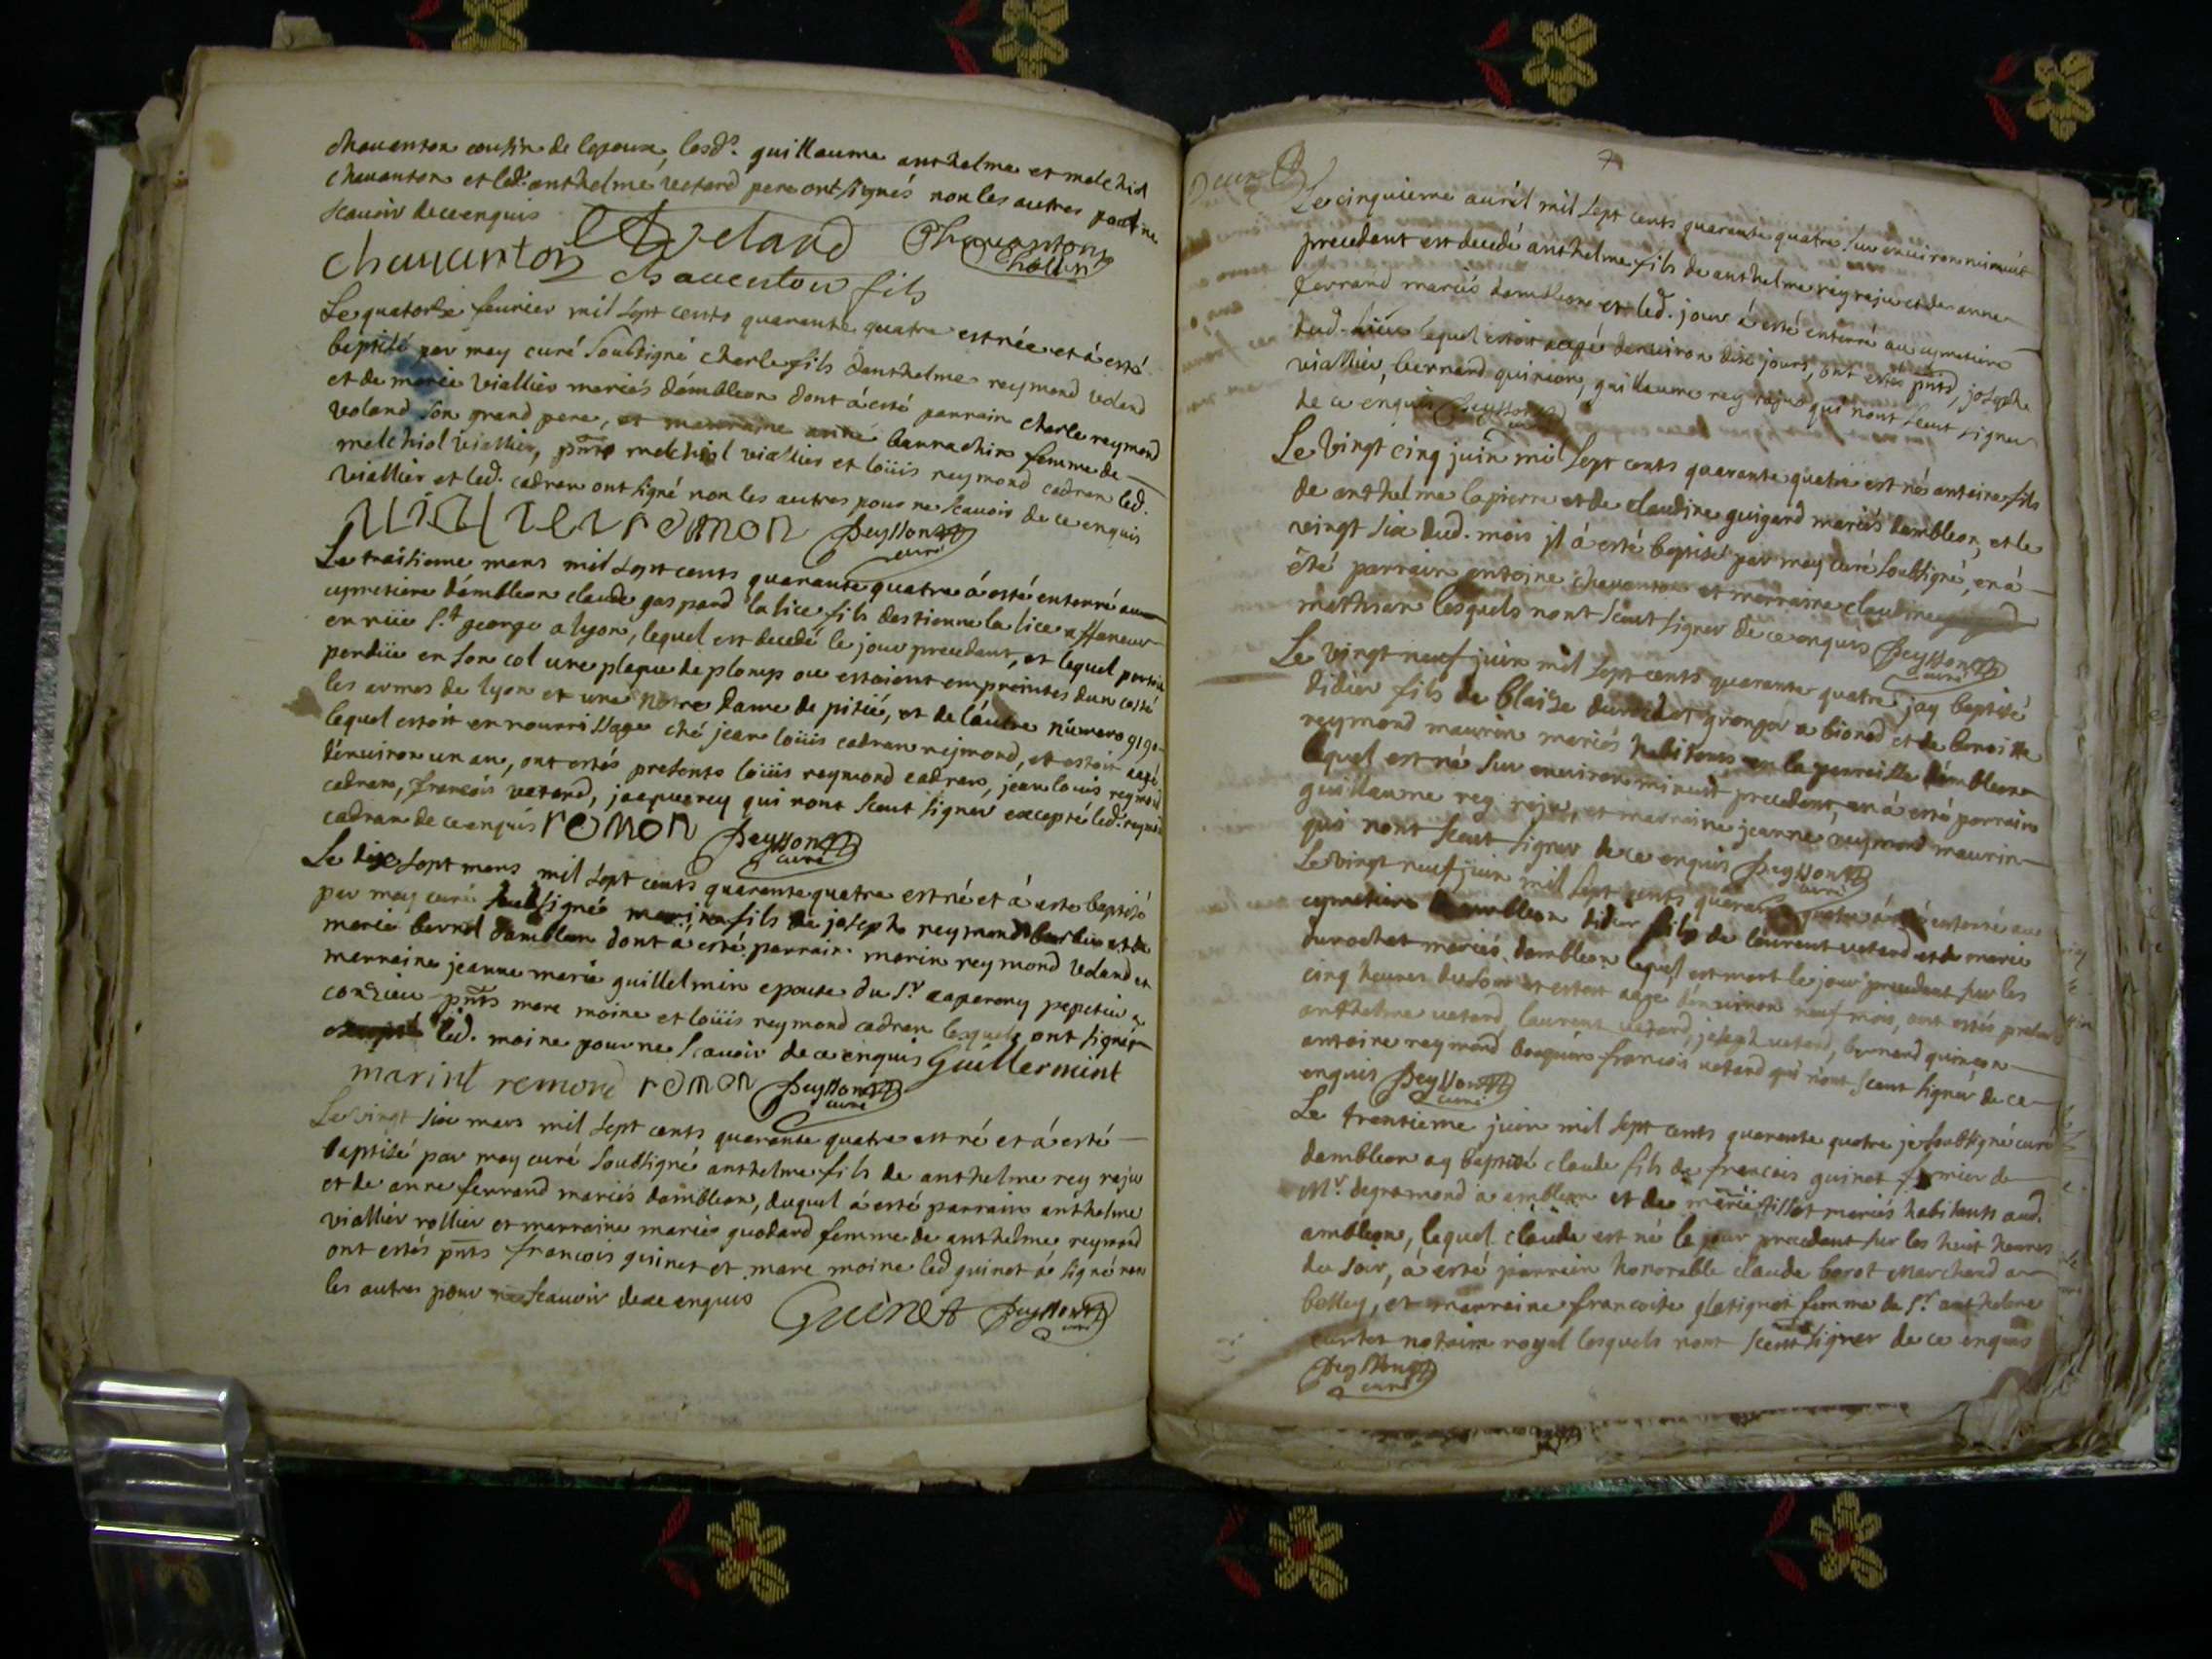 chauanton cousin de lepoux, lesd.s guillaume anthelme et melchiol
chauanton et led. anthelme vetard pere ont signés non les autres pour ne
scauoir de ce enquis
chauanton Vetard Chauanton
chauenton fils
Le quatorze feurier mil sept cents quarante quatre est née et á esté
baptisé par moy curé soubsigné charle fils danthelme reymond voland
et de marie viallier mariés dámbleon dont á esté parrain charle reymond
voland son grand pere, et marraine anne bannachin femme de
melchiol viallier, pnts melchiol viallier et loüis reymond cadran led.
viallier et led. cadran ont signé non les autres pour ne scauoir de ce enquis
viallier remon peysson curé
Le traisieme mars mil sept cents quarante quatre á esté enterré au
cymetiere dámbleon claude gaspard la lice fils destienne la lice affaneur
en rüe S.t george a lyon, lequel est decedé le jour precedant, et lequel portoit
perdüe en son col une plaque de plomp ou estoient empreintes dun costé
les armes de lyon et une notre dame de pitié, et de láutre numero 9190
lequel estoit en nourrissage ché jean loüis cadran rejmond, et estoit aagé
dénuiron un an, ont estés presents loüis reymond cadran, jean louis reymond
cadran, francois vetard, jacque rey qui nont sceut signer excepté led. reymond
cadran de ce enquis remon peysson curé
Le dixe sept mars mil sept cents quarante quatre est né et á esté baptisé
par moy curé soubsigné marin fils de joseph reymond et de
marie bernel dambleon dont á esté parrain marin reymond voland et
marraine jeanne marie guillelmin epouse du S.r caperony pepetier a
conzieu pnts marc moine et loüis reymond cadran lesquels ont signés
excepté led. moine pour ne scauoir de ce enquis Guillermint
marint remond remon peysson curé
Le vingt six mars mil sept cents quarante quatre est né et á esté
baptisé par moy curé soubsigné anthelme fils de anthelme rey reju
et de anne ferrand mariés dámbleon, duquel á esté parrain anthelme
viallier rollier et marraine marie godard femme de anthelme reymond
ont estés pnts francois guinet et marc moine led guinet á signé non
les autres pour ne scauoir de ce enquis
Guinet peysson curé
7
Le cinquieme auril mil sept cents quarante quatre sur enuiron minuit
precedant est decedé anthelme fils de anthelme rey reju et de anne
ferrand mariés dambleon et led. jour á esté enterré au cymetiere
dud. lieu lequel estoit aagé denuiron dix jours, ont estés pnts, joseph
viallier, bernard quinson, guillaume rey reju qui nont sceut signer
de ce enquis peysson curé
Le vingt cinq juin mil sept cents quarante quatre est né antoine fils
de anthelme lapierre et de claudine guigard mariés dambleon, et le
vingt six dud. mois jl á esté baptisé par moy curé soubsigné, en á
été parrain antoine chauanton et marraine claudine
mathian lesquels nont sceut signer de ce enquis peysson curé
Le vingt neuf juin mil sept cents quarante quatre jay baptisé
didier fils de blaize durochat granger a bionod et de benoitte
reymond maurin mariés habitants en la parroisse dámbleon
lequel est né sur enuiron minuit precedent, en á esté parrain
guillaume rey reju, et marraine jeanne reymond maurin
qui nont sceut signer de ce enquis peysson curé
Le vingt neuf juin mil sept cents quarante quatre á esté enterré au
cymetiere dambleon didier fils de láurent vetard et de marie
durochat mariés dambleon lequel est mort le jour precedent sur les
cinq heures du soir et estoit aagé dénuiron neuf mois, ont estés present
anthelme vetard, laurent vetard, joseph vetard, bernard quinson
antoine reymond francois vetard qui nont sceut signér de ce
enquis peysson curé
Le trentieme juin mil sept cents quarante quatre je soubsigné curé
dambleon ay baptisé claude fils de francois guinet fermier de
M.r degramond a ambleon et de marie tillet mariés habitants aud.
ambleon, lequel claude est né le jour precedant sur les huit heures
du soir, á esté parrain honorable claude borot marchand a
belley, et marraine francoise glatignot femme de S.r anthelme
carter notaire royal lesquels nont sceut signer de ce enquis
peysson curé